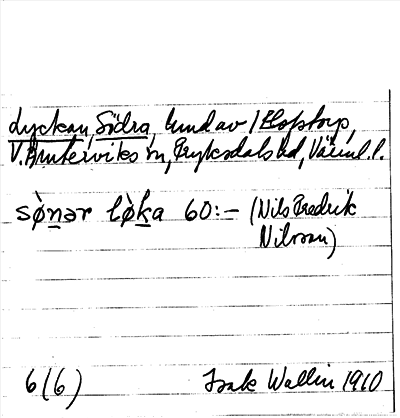 Lyckan, Södra, hmd av 1 Klopstorp,
V. Ämterviks sn, Fryksdals hd, Värml. l.
sø̀nər lø̀ka 60:- (Nils Fredrik
Nilsson)
6(6) Isak Wallin 1910